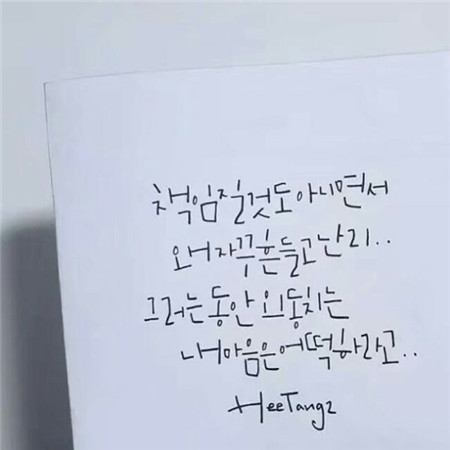 책임질것도아니면서
왜자꾸흔들고난리..
그러는동안 요동치는
내마음은어떡하라고..
HeeTangz